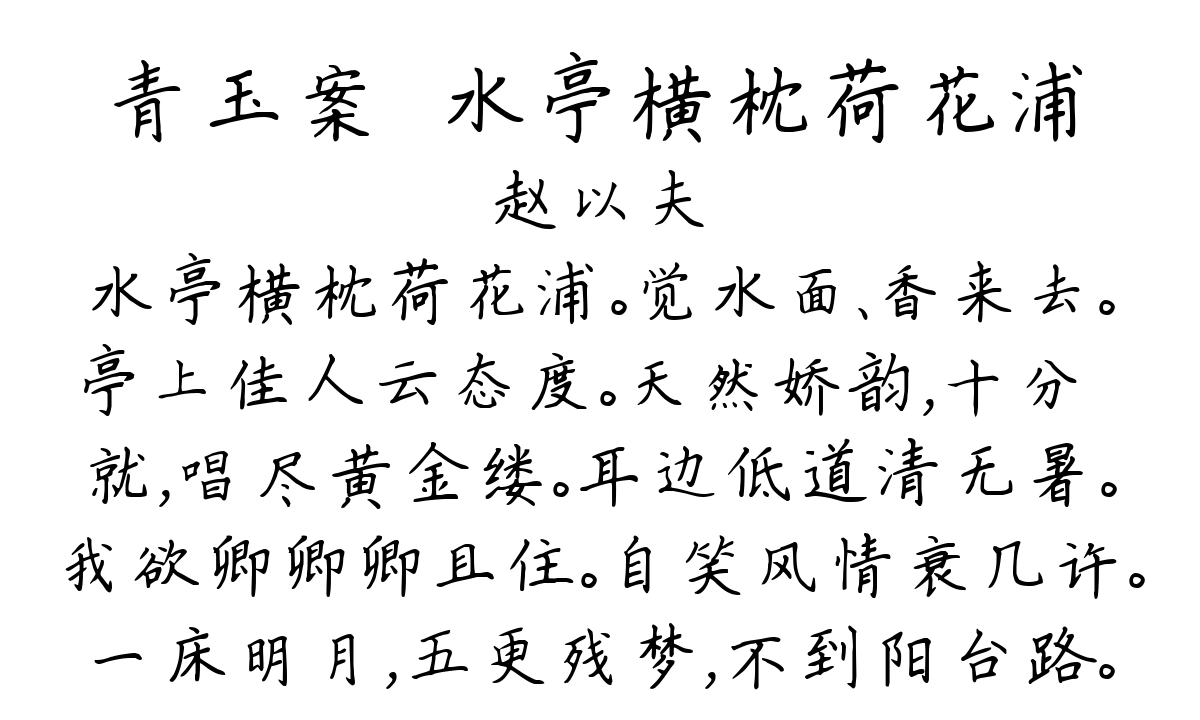 青玉案 水亭横枕荷花浦
赵以夫
水亭横枕荷花浦。觉水面、香来去。
亭上佳人云态度。天然娇韵,十分
就,唱尽黄金缕。耳边低道清无暑。
我欲卿卿卿且住。自笑风情衰几许。
一床明月,五更残梦,不到阳台路。